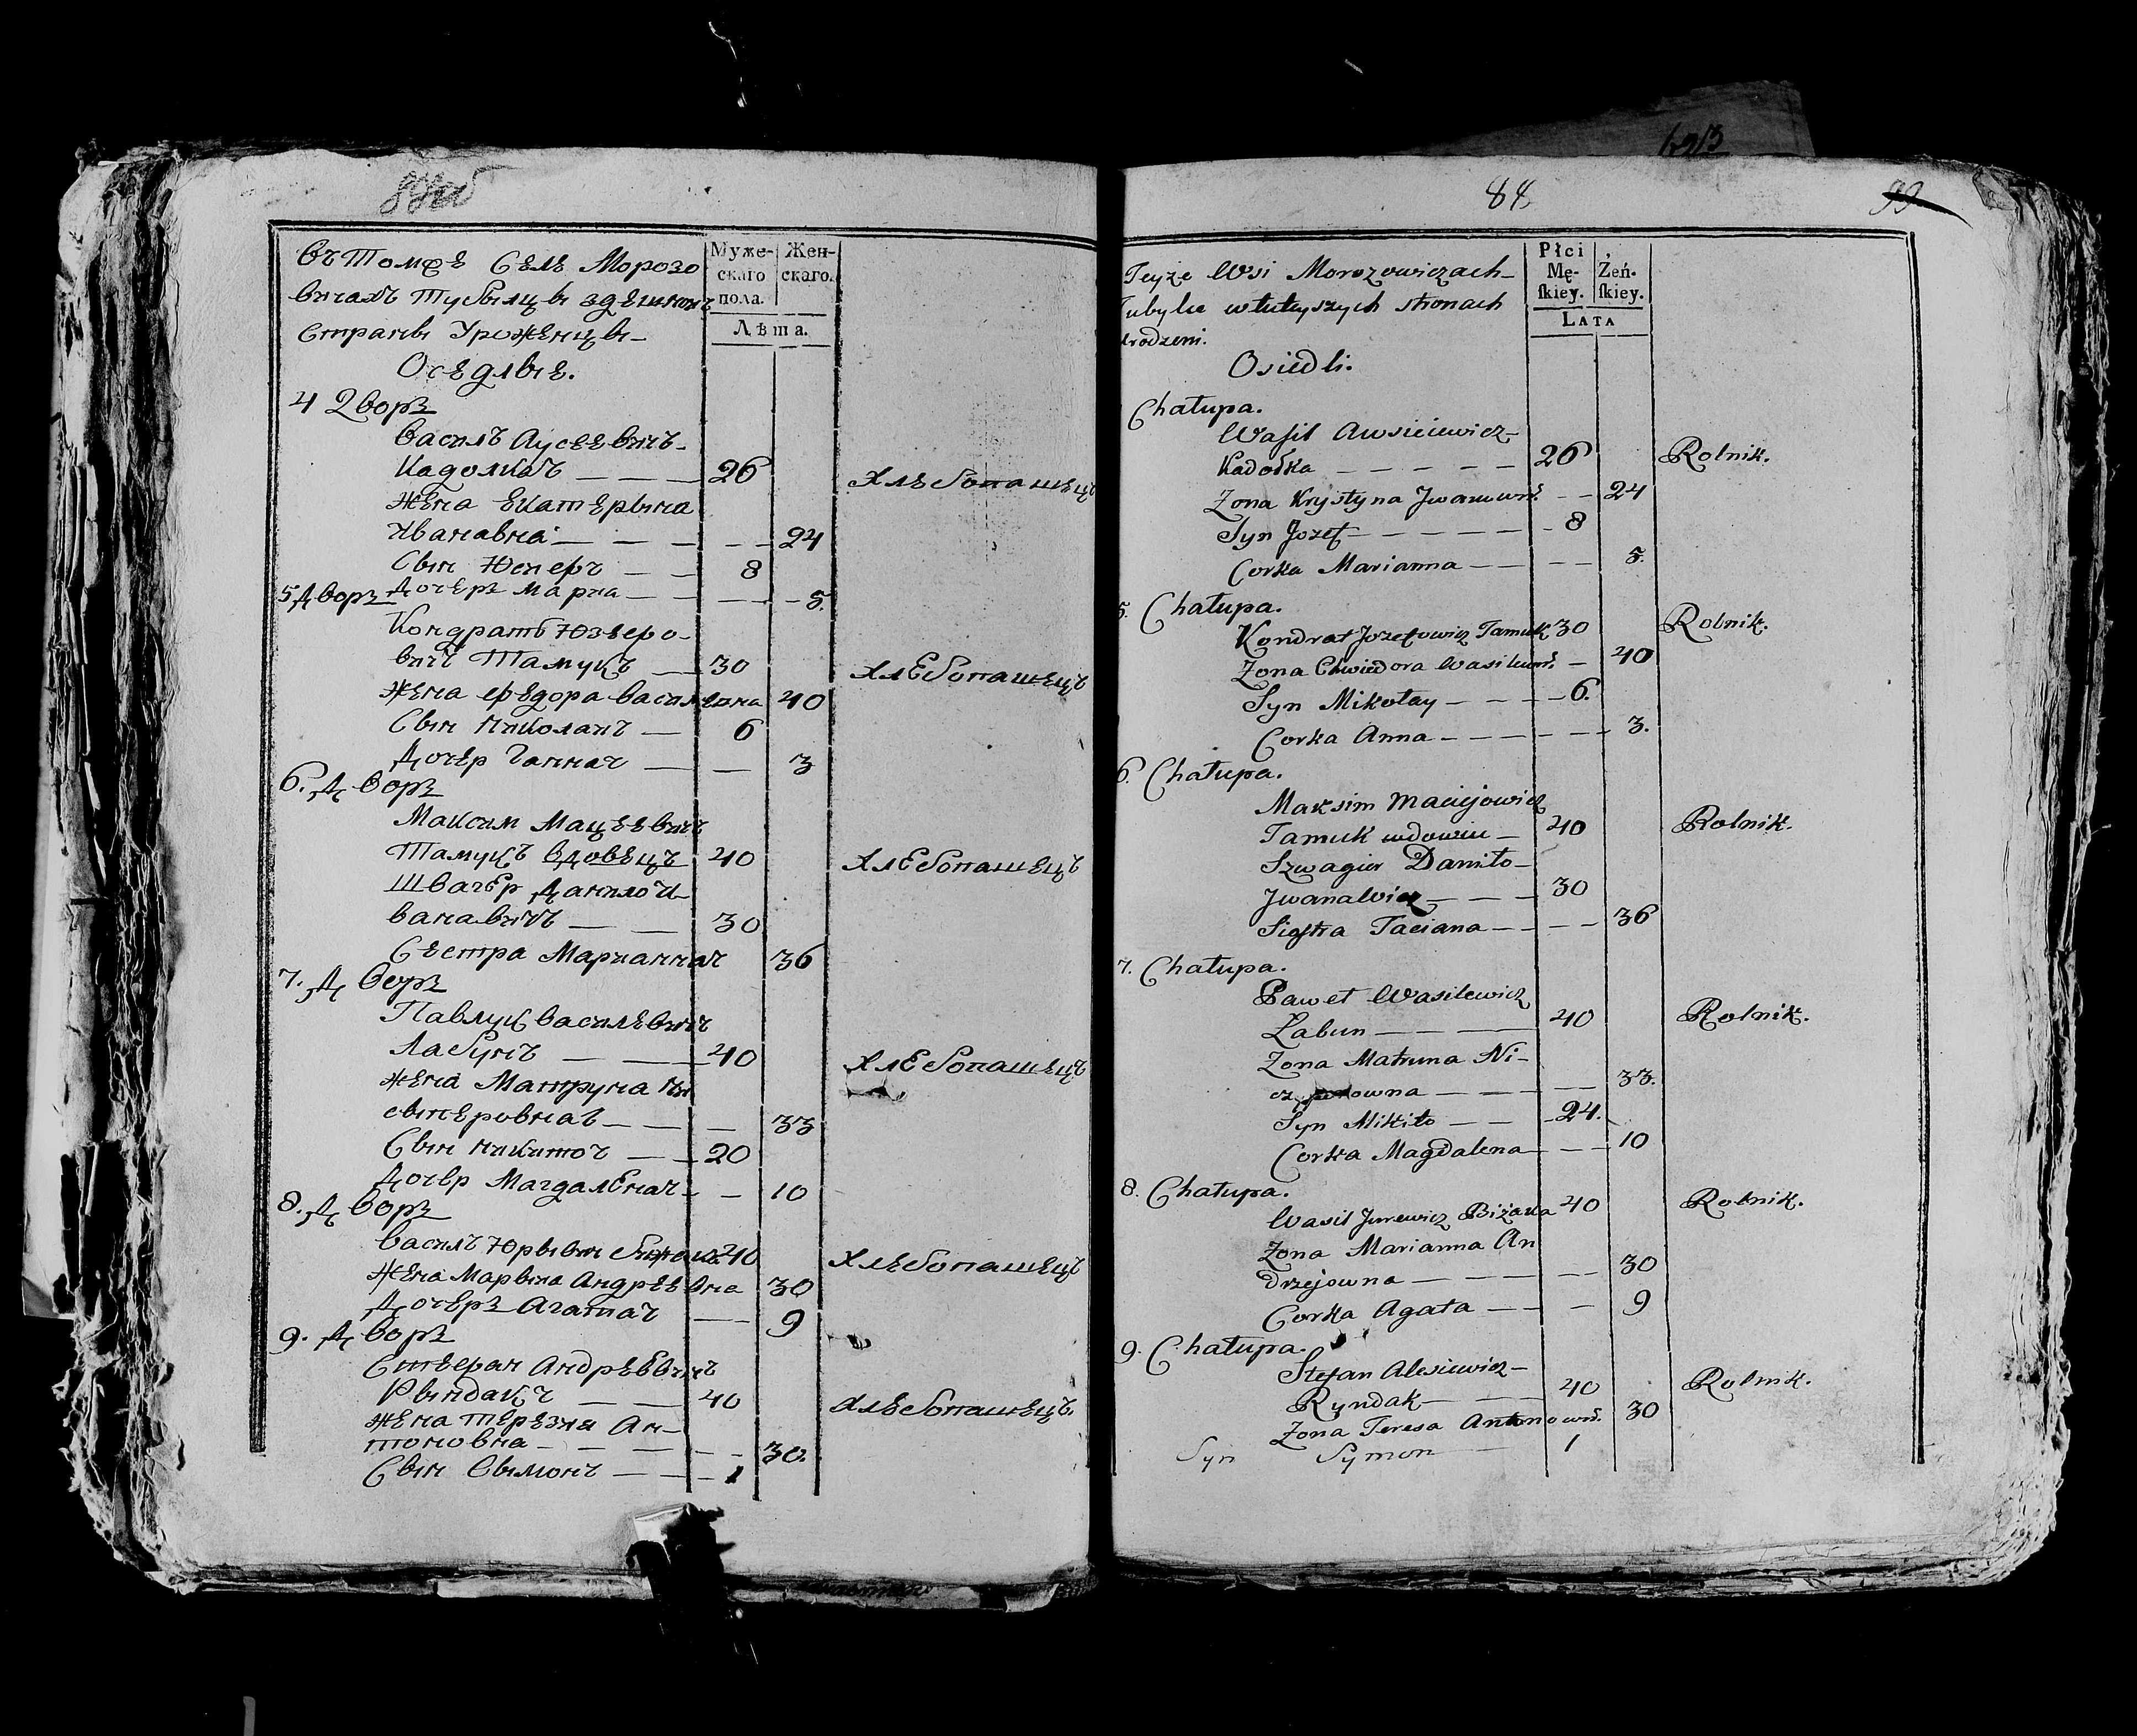 въ Томже Селе Морозо
вичахъ Тубылцы здешнихъ
Страны Уроженцы
Оседлые.
Муже-
скаго
пола.
Жен-
скаго.
Лѣта.
4 Дворъ
Василъ Аусеевичъ-
Кадолка — — — 26
Хлебопашецъ
Жена Екатерына
Ивановна — — — — 24
Сын Юзефъ — — 8
5 Дворъ Дочеръ Мария — — — 5.
Кондратъ Юзефо-
вичъ Тамукъ — 30
Хлебопашецъ
Жена Федора Василевна 40
Сын Николаи — 6
Дочер Ганна — — 3
6. Дворъ
Максим Мацеевичъ
Тамукъ вдовецъ 40
Хлебопашецъ
Швагер Данило И-
вановичъ — — 30
Сестра Марианна 36
7. Дворъ
Павлук Василевичъ
Лабунъ — — 40
Хлебопашецъ
Жена Матруна Ни
— — — 33
Сын Никита — — 20
Дочер Магдалена — — 10
8. Дворъ
Василъ Юревич 40
Хлебопашецъ
Жена Марына Андреевна 30
Дочеръ Агата — 9
9. Дворъ
Стефан Андреевичъ
Рындакъ — — 40
Хлебопашецъ.
Жена Терезия Ан-
тоновна — — — — — 30.
Сын Сымонъ — — — 1
84
99
Teyże Wsi Morozowiczach
Tubylce w tutyszych stronach
urodzeni.
Osiedli.
Płci
Mę-
ſkiey.
Żeń-
ſkiey.
LATA
Chałupa.
Wasil Awsieiewicz-
Kadołka — — — — — 26 Rolnik.
Zona Krystyna Jwanown. — — 24
Syn Jozef — — — — — 8
Corka Marianna — — — — 5.
5. Chałupa.
Kondrat Jozefowicz Tamuk 30 Rolnik.
Zona Chwiedora Wasilewn. — 40
Syn Mikołay — — — — 6.
Corka Anna — — — — — — 3.
6. Chałupa.
Maksim Maciejowicz
Tamuk wdowiec — 40 Rolnik.
Szwagier Daniło-
Jwanawicz — — — 30
Siostra Taciana — — — — 36
7. Chałupa.
Paweł Wasilewicz
Łabun — — — 40 Rolnik.
Zona Matruna Ni-
— — — — 33.
Syn Mikito — — — 24.
Corka Magdalena — — — 10
8. Chałupa.
Wasil Jurewicz 40 Rolnik.
Zona Marianna An
drzejowna — — — — — 30
Corka Agata — — — 9
9. Chałupa.
Stefan Alesiewicz-
Ryndak — — 40 Rolnik.
Zona Teresa Antonown. 30
Syn Symon — 1